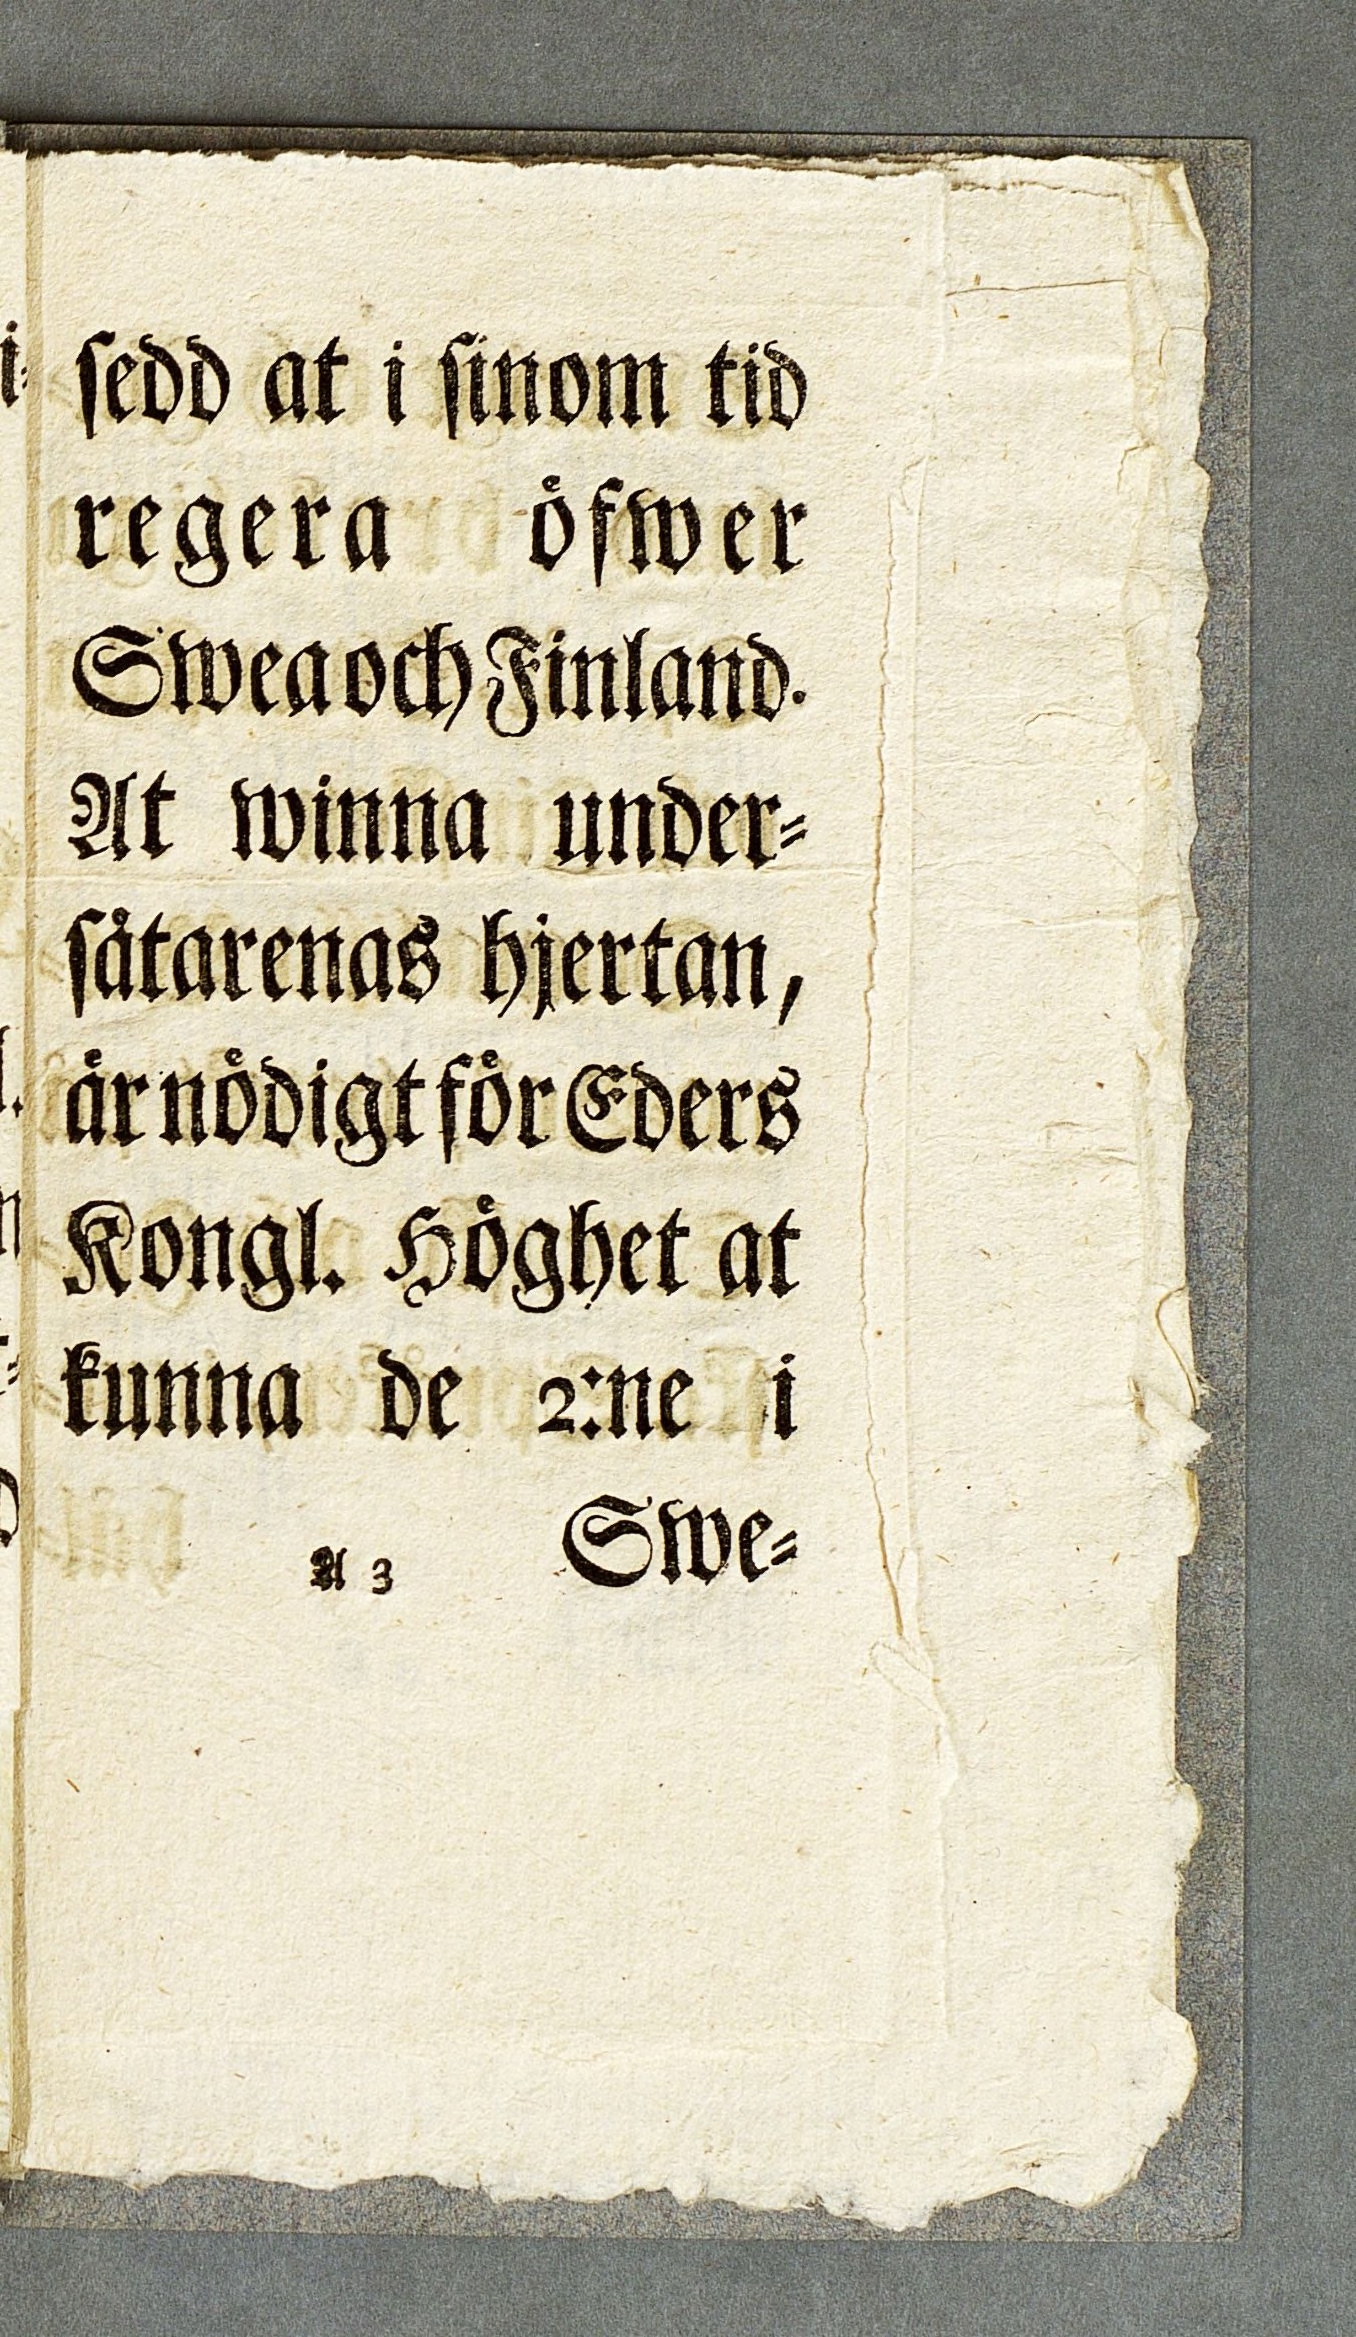 sedd at i sinom tid
regera öfwer
Swea och Finland.
At winna under-
såtarenas hjertan,
är nödigt för Eders
Kongl. Höghet at
kunna de 2:ne i
A 3 Swe-